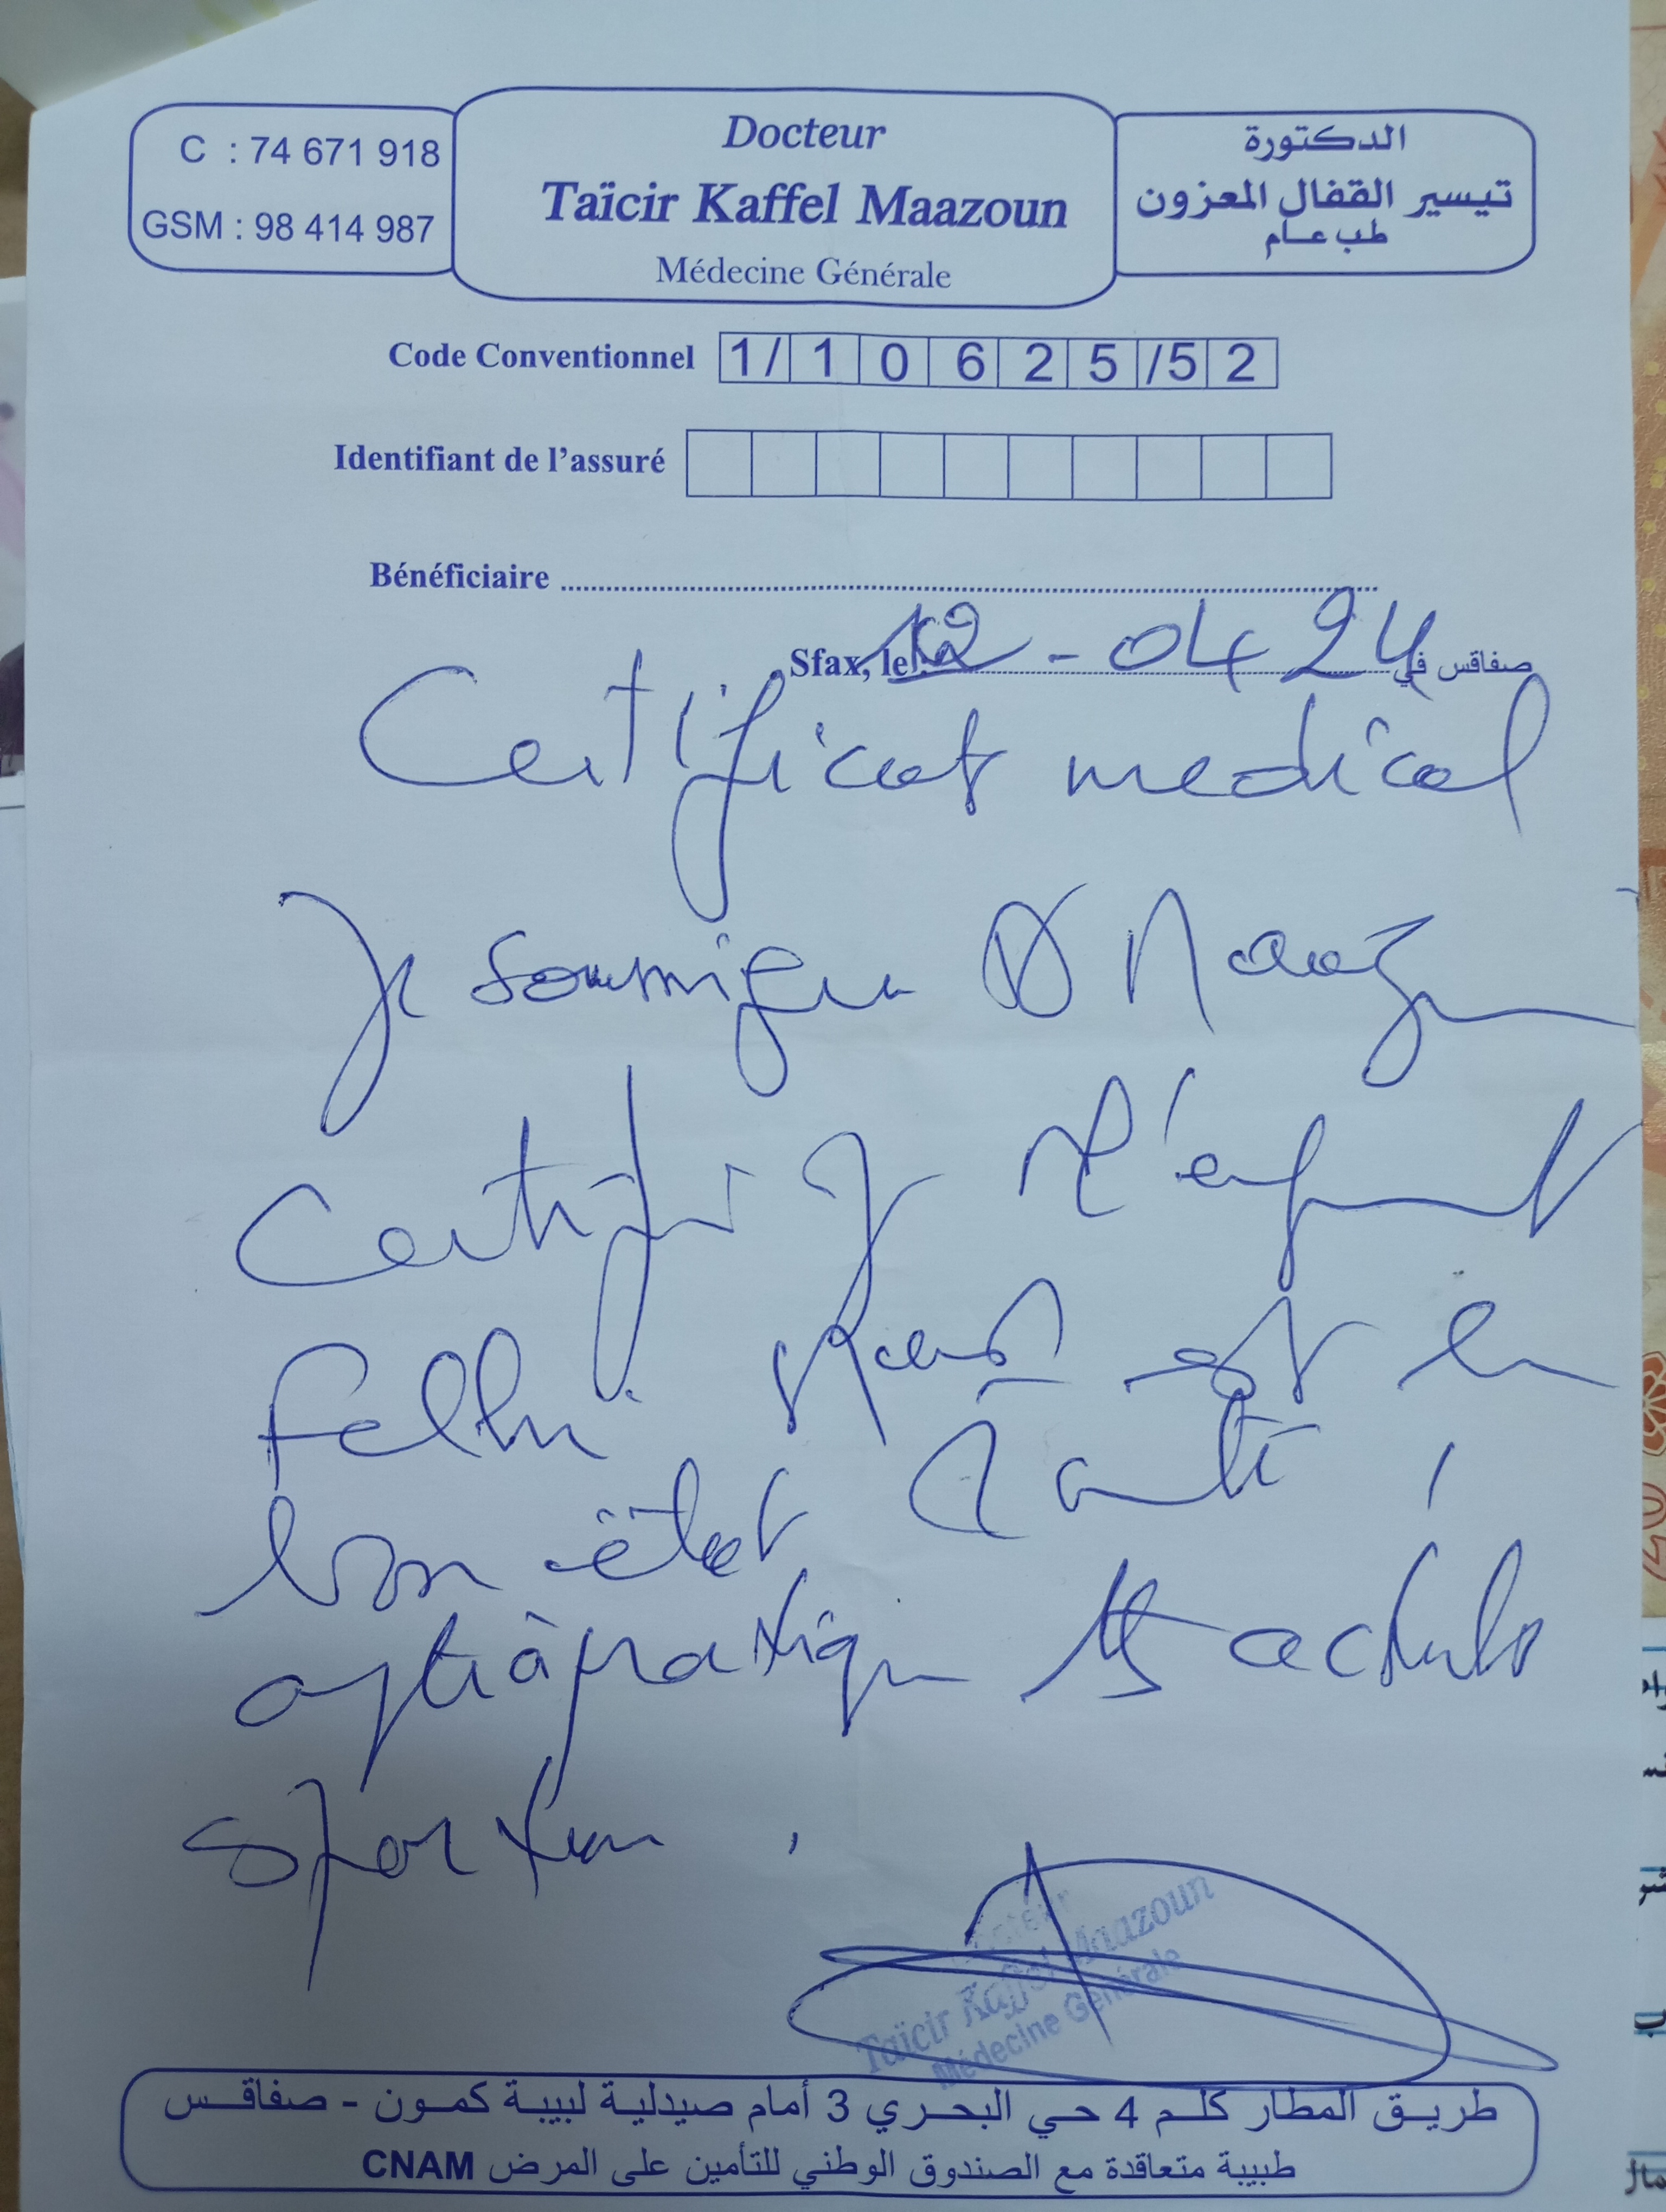 C : 74 671 918
GSM : 98 414 987
Docteur
Taïcir Kaffel Maazoun
Médecine Générale
الدكتورة
تيسير القفال المعزون
طب عام
Code Conventionnel 1/10625/52
Identifiant de l'assuré
Bénéficiaire
Sfax, le 12-04 24 صفاقس في
Certificat medical
Je soussigné Dr Maazoun
Certifie que l'enfant
Felhi est en
bon état santé,
apte à pratiquer activité
sportive.
Docteur
Taïcir Kaffel Maazoun
Médecine Générale
طريق المطار كلم 4 حي البحري 3 أمام صيدلية لبيبة كمون - صفاقس
طبيبة متعاقدة مع الصندوق الوطني للتأمين على المرض CNAM